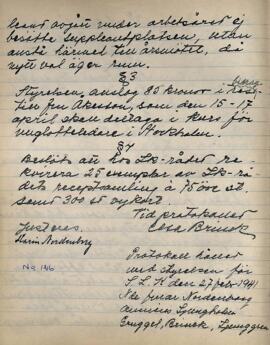 lerat avgått under arbetsåret ej
besitta suppleantplatsen, utan
anstå härmed till årsmötet, då
nytt val äger rum.
§3
Styrelsen anslog 80 kronor i bidrag
till fru Åkesson, som den 15-17
april skall deltaga i kurs för
ungdomsledare i Stockholm.
§4
Beslöts att hos Lk-rådet re-
kvirera 25 exemplar av Lk-rå-
dets receptsamling à 75 öre st.
samt 300 st vykort.
Vid protokollet
Justeras: Elsa Brunsk
Karin Nordenborg
No 146
Protokoll hållet
med styrelsen för
S. L. K den 27 febr 1941
Nrv fruar Nordenborg
Ljungholm
Brunsk, Ljunggren